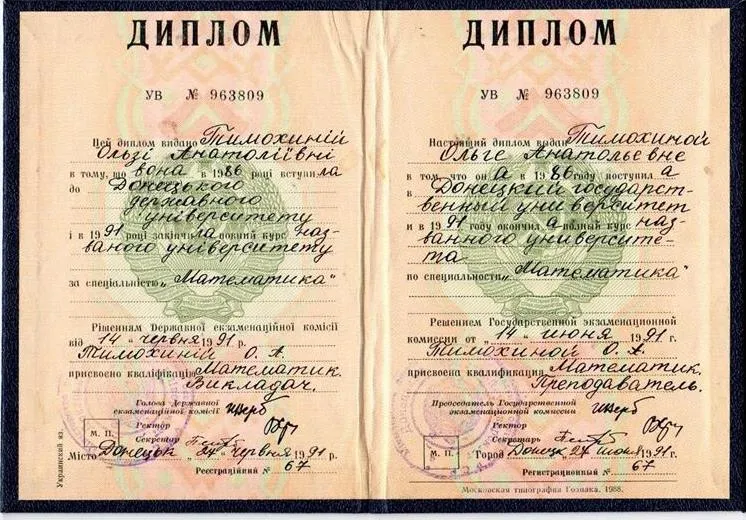 ДИПЛОМ
УВ № 963809
Цей диплом видано Тимохиній
Ользі Анатоліївні
в тому, що вона в 1986 році вступила
до Донецького
державного
університету
і в 1991 році закінчила повний курс наз-
ваного університету
за спеціальністю „Математика“
Рішенням Державної екзаменаційної комісії
від 14 „ червня 1991 р.
Тимохиній О. А.
присвоєно кваліфікацію Математик.
Викладач.
Голова Державної
екзаменаційної комісії
Ректор
Секретар
М. П.
Місто Донецьк „24“ червня 1991 р.
Реєстраційний № 67
Украинский яз.
ДИПЛОМ
УВ № 963809
Настоящий диплом выдан Тимохиной
Ольге Анатольевне
в том, что она в 1986 году поступила
в Донецкий государст-
венный университет
и в 1991 году окончила полный курс наз-
ванного университе-
та
по специальности „Математика“
Решением Государственной экзаменационной
комиссии от „ 14 “ июня 1991 г.
Тимохиной О. А.
присвоена квалификация Математик.
Преподаватель.
Председатель Государственной
экзаменационной комиссии
Ректор
Секретарь
М. П.
Город Донецк 24 июня 1991 г.
Регистрационный № 67
Московская типография Гознака. 1988.